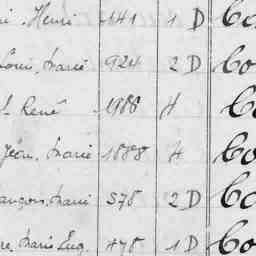 Henri 141 1 D Co
Louis, Marie 924 2 D Co
René 1988 H Co
Jean, Marie 1888 H Co
François, Marie 578 2 D Co
Marie Eug. 478 1 D Co